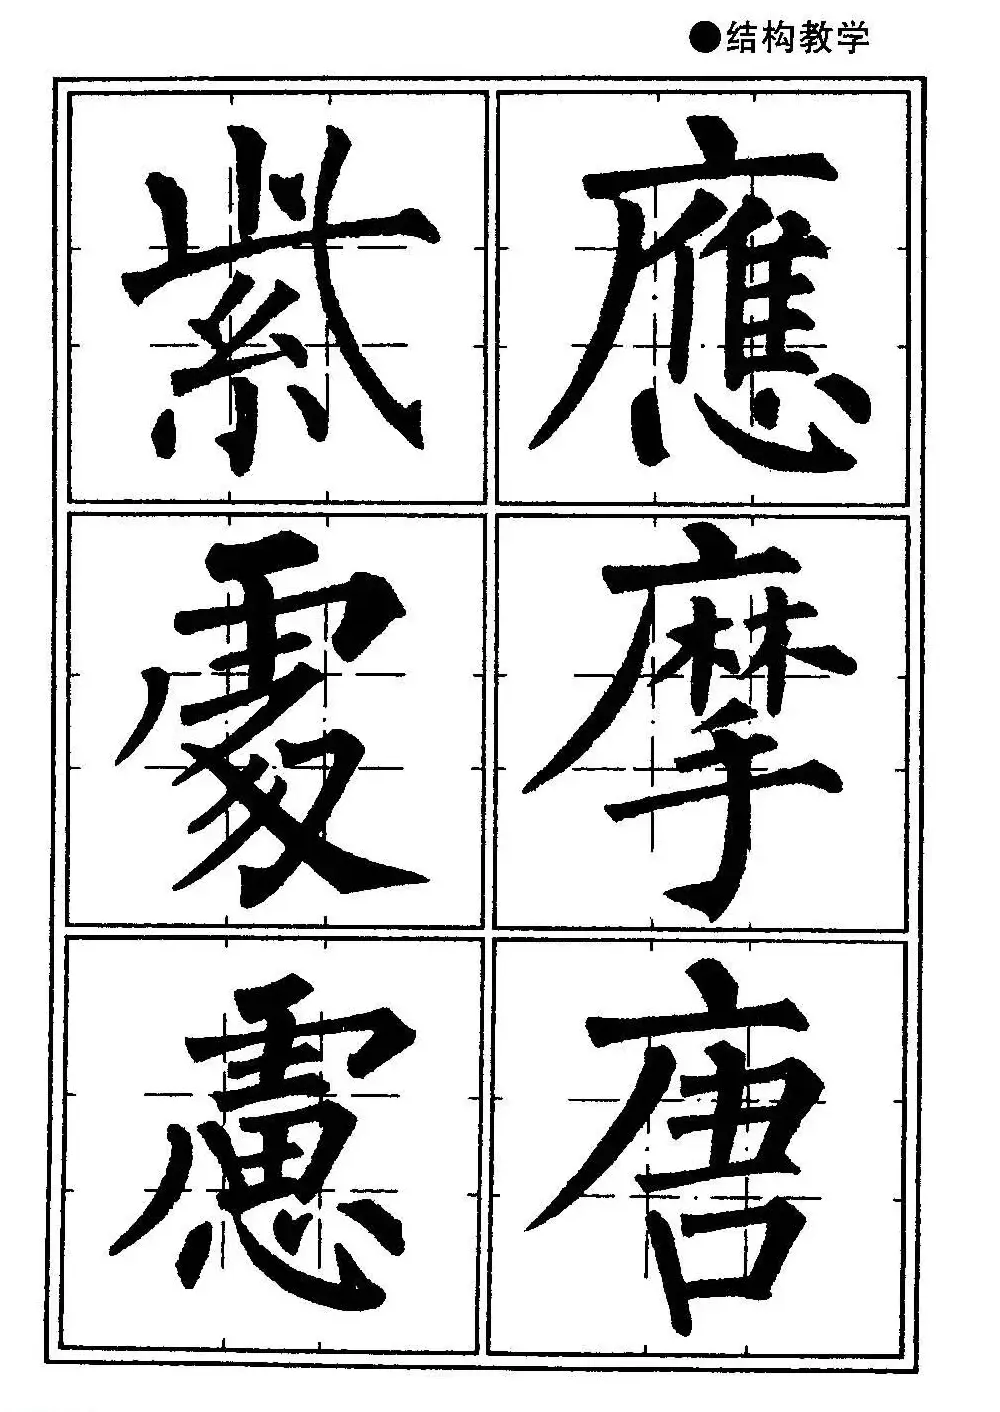 ●结构教学
應摩唐
紫處慮